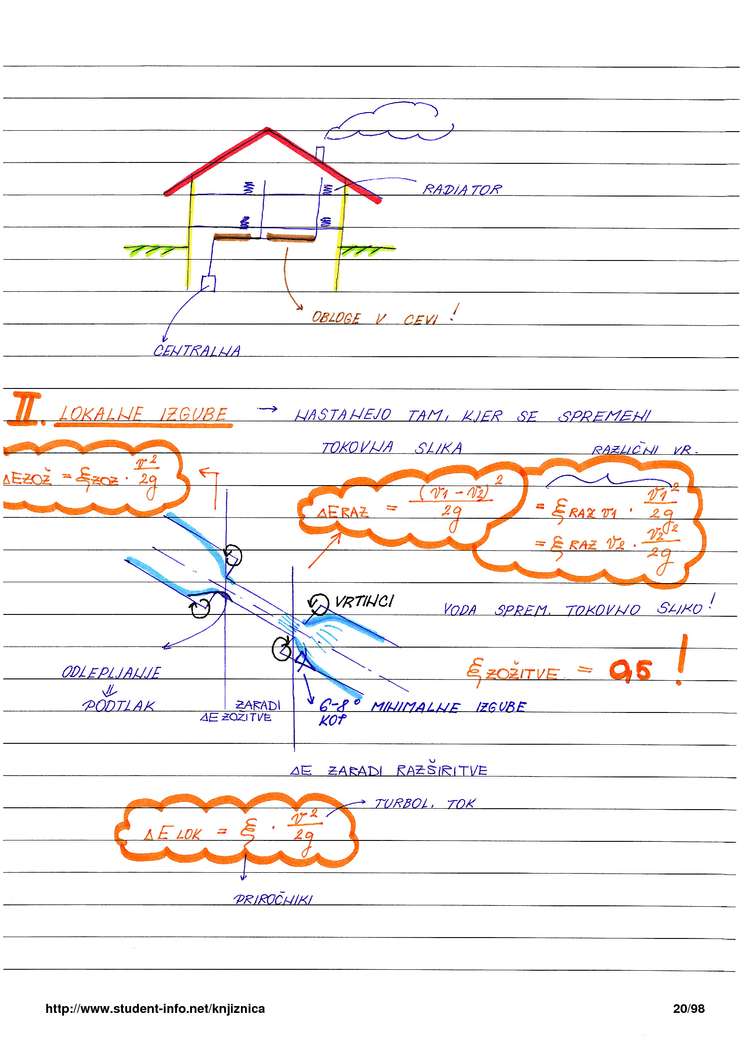 RADIATOR
OBLOGE V CEVI!
CENTRALNA
II. LOKALNE IZGUBE → NASTANEJO TAM, KJER SE SPREMENI
TOKOVNA SLIKA
RAZLIČNI VR.
ΔEZOŽ = ξZOZ · v²/2g
ΔERAZ = (v1 - v2)²/2g
= ξRAZ v1 · v1²/2g
= ξRAZ v2 · v2²/2g
VRTINCI
VODA SPREM. TOKOVNO SLIKO!
ξZOŽITVE = 0,5!
ODLEPLJANJE
⇓
PODTLAK
ZARADI
ΔE ZOŽITVE
6-8° MINIMALNE IZGUBE
KOT
ΔE ZARADI RAZŠIRITVE
ΔE LOK = ξ · v²/2g
TURBOL. TOK
PRIROČNIKI
http://www.student-info.net/knjiznica
20/98